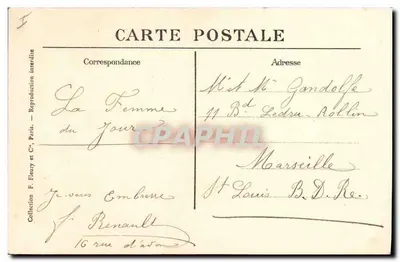 CARTE POSTALE
Correspondance
La Femme
du Jour ?
Je vous Embrasse
f. Renault
16 rue d'
Adresse
Mr et Me Gondolfe
11 Bd Ledru-Rollin
Marseille
St Louis B. D. Re.
Collection F. Fleury et Cie, Paris. — Reproduction interdite
I
CPAPHIL